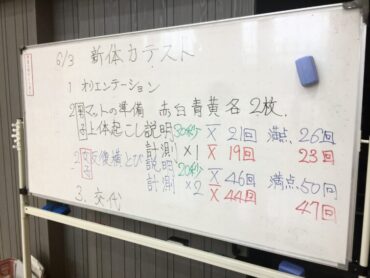 6/3 新体力テスト
1 オリエンテーション
2 マットの準備 赤白青黄各2枚.
上体起こし 説明 30秒 X̄ 21回 満点 26回
計測×1 X̄ 19回 23回
2 反復横とび 説明 20秒 X̄ 46回 満点 50回
計測×2 X̄ 44回 47回
3. 交代